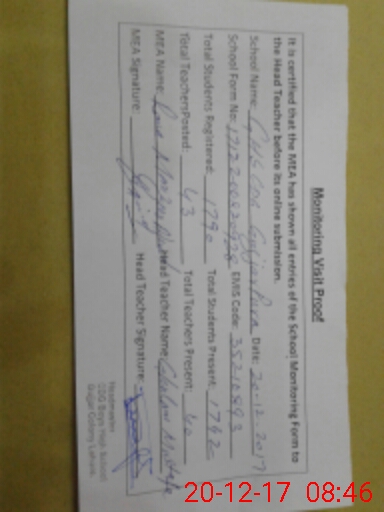 Monitoring Visit Proof
It is certified that the MEA has shown all entries of the School Monitoring Form to
the Head Teacher before its online submission.
School Name: GHS CDG Gujjarpura Date: 20-12-2017
School Form No: EMIS Code: 35210593
Total Students Registered: 1790 Total Students Present: 1742
Total TeachersPosted: 43 Total Teachers Present: 40
MEA Name: Head Teacher Name: Ghulam Mustafa
MEA Signature: Head Teacher Signature:
Headmaster
CDG Boys High School
Gujjar Colony Lahore.
20-12-17 08:46